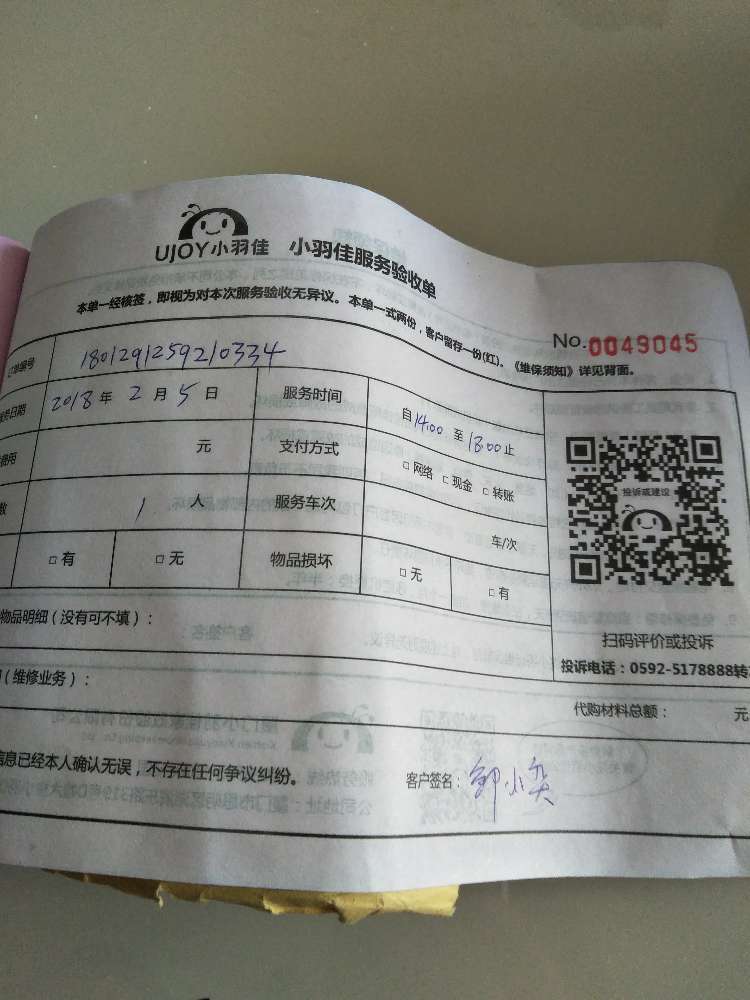 UJOY小羽佳 小羽佳服务验收单
本单一经核签，即视为对本次服务验收无异议。本单一式两份，客户留存一份(红)。《维保须知》详见背面。
No.0049045
订单编号 180129125921 0334
服务日期 2018年 2月 5日 服务时间 自14:00 至18:00止
费用 元 支付方式 □网络 □现金 □转账
数 1 人 服务车次 车/次
□有 □无 物品损坏 □无 □有
投诉或建议
物品明细（没有可不填）：
扫码评价或投诉
投诉电话：0592-5178888转
（维修业务）：
代购材料总额： 元
信息已经本人确认无误，不存在任何争议纠纷。 客户签名：